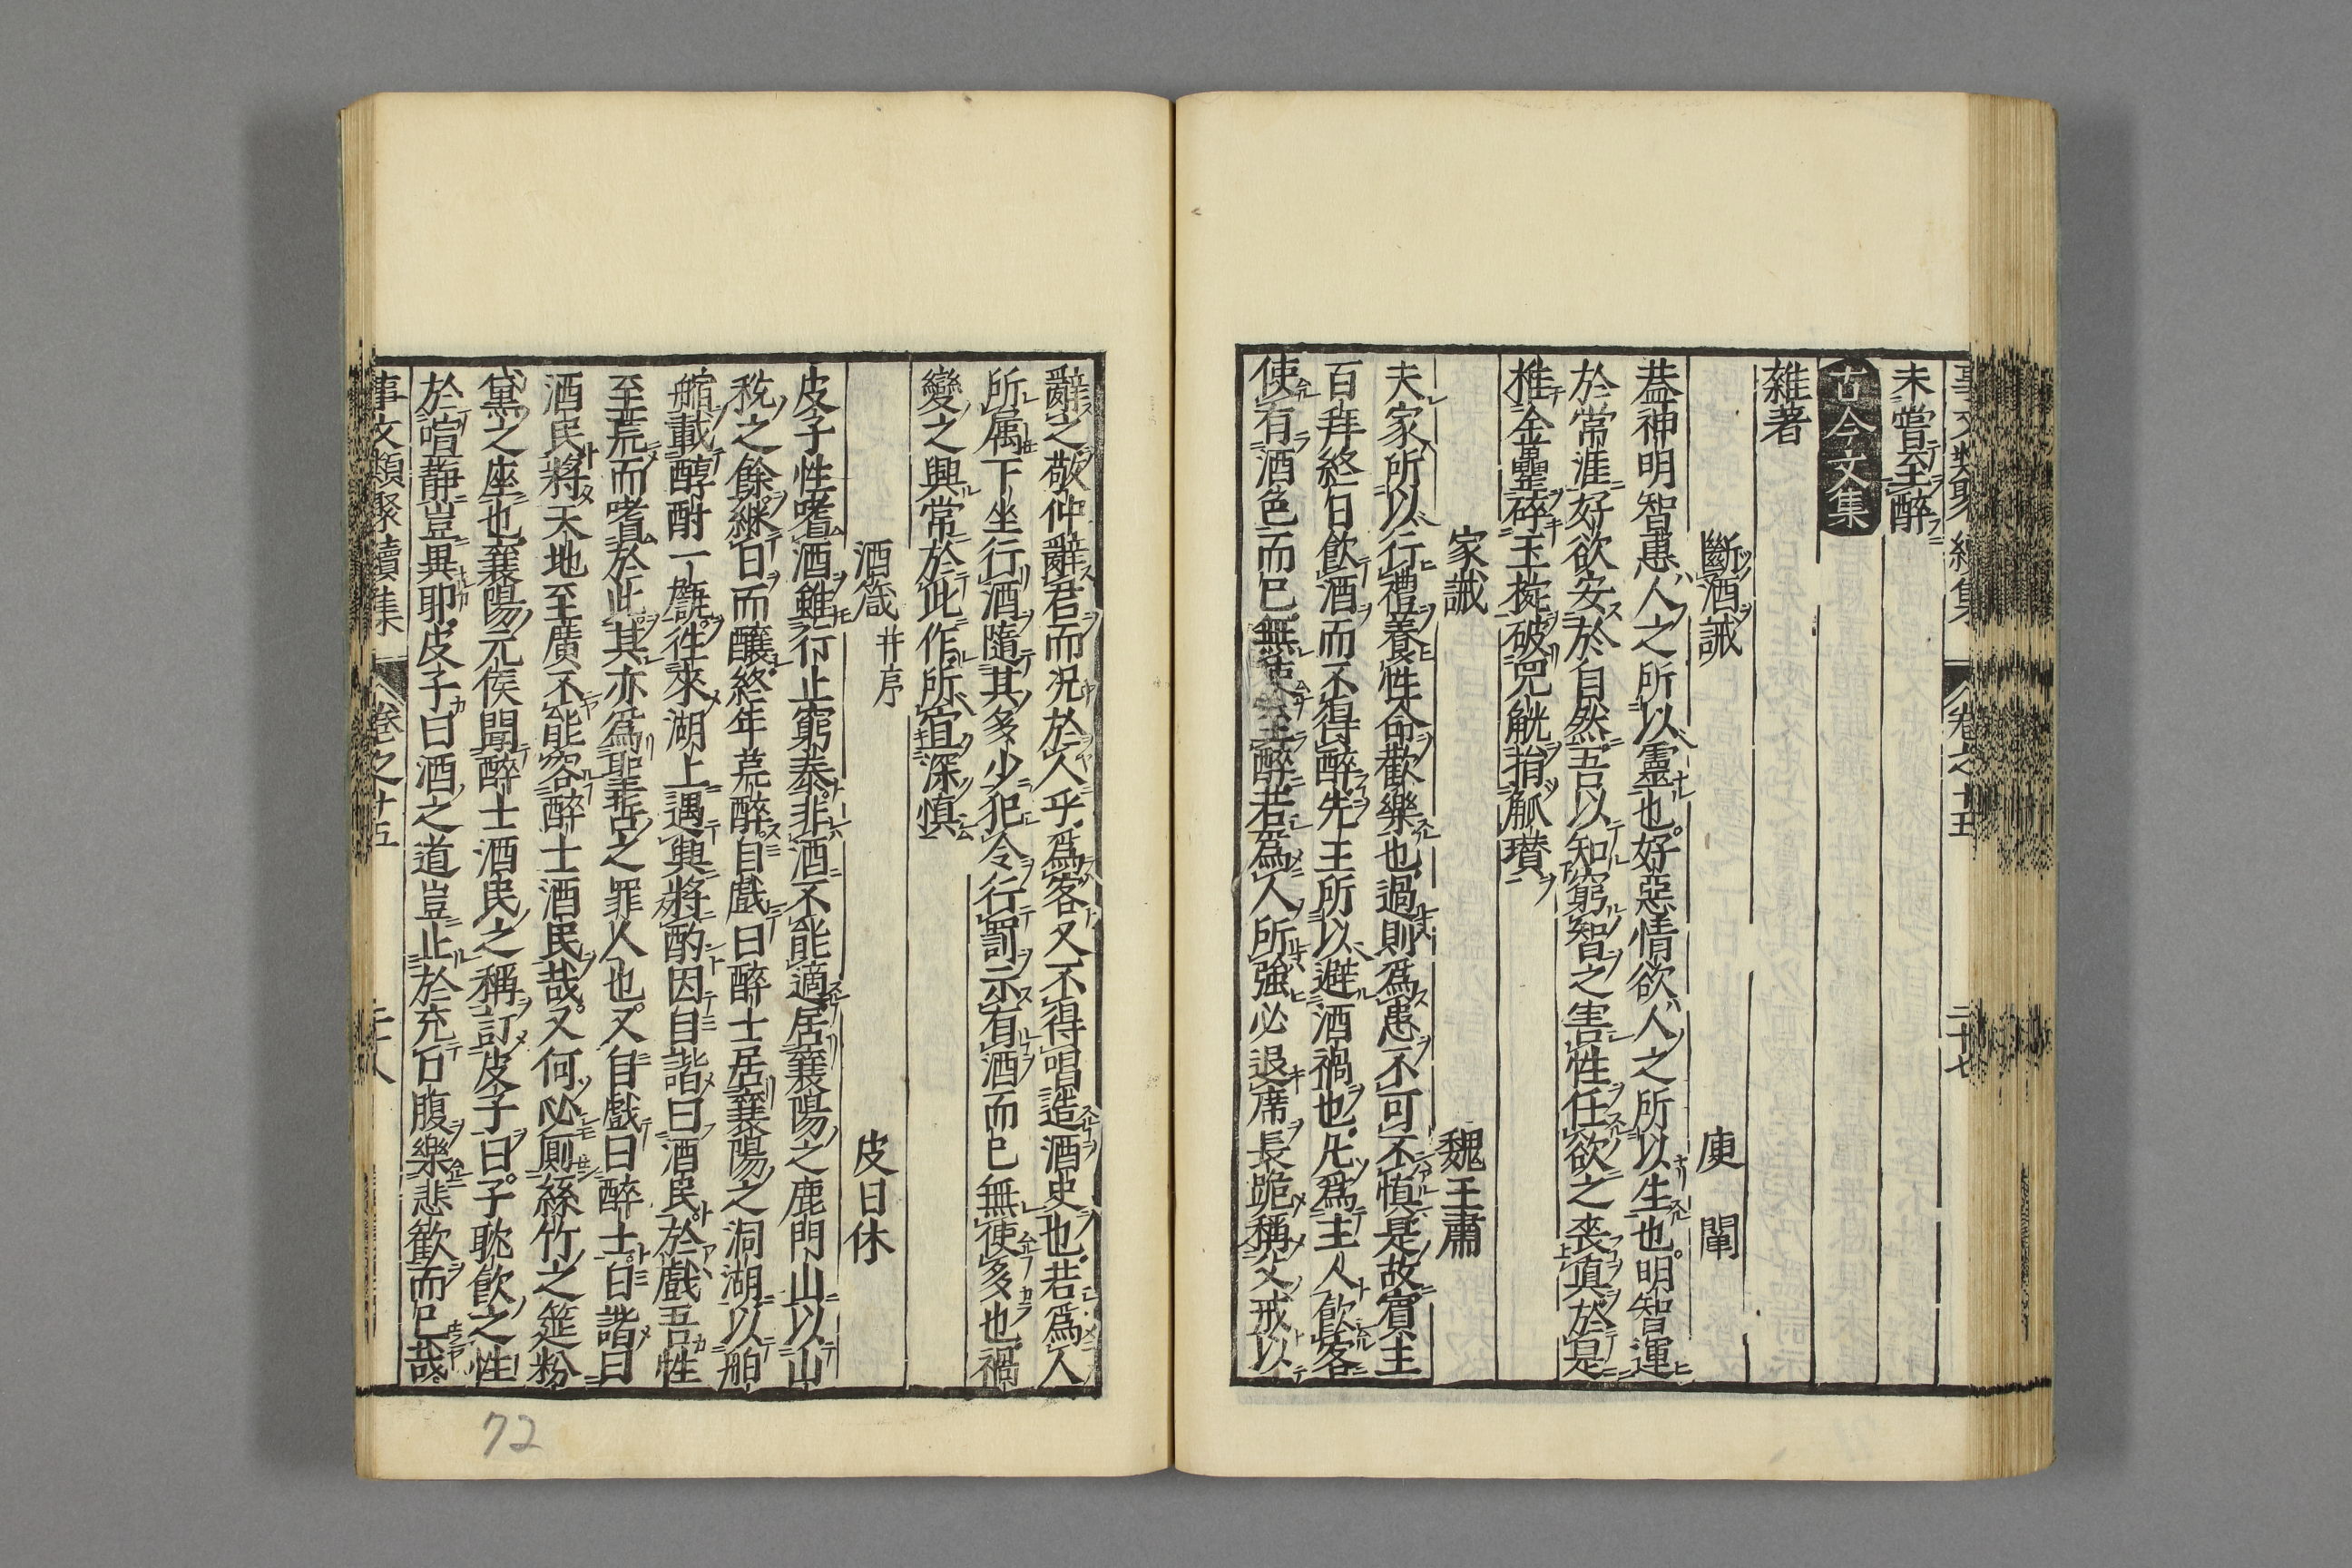 事文類聚續集 卷之十五 二十七
未嘗至醉
古今文集
雜著
斷酒誡 庾闡
葢神明智惠人之所以靈也好惡情欲人之所以生也明智運
於常涯好欲安於自然吾以知窮智之害性任欲之喪真於是
椎金罍碎玉椀破兕觥捐觚瓚
家誡 魏王肅
夫家所以行禮養性命歡樂也過則爲患不可不慎是故賓主
百拜終日飲酒而不得醉先王所以避酒禍也凡爲主人飲客
使有酒色而已無使至醉若爲人所強必退席長跪稱父戒以
辭之敬仲辭君而况於人乎爲客又不得唱造酒史也若爲人
所属下坐行酒隨其多少犯令行罰示有酒而已無使多也禍
變之興常於此作所宜深慎
酒箴 并序 皮日休
皮子性嗜酒雖行止窮泰非酒不能適居襄陽之鹿門山以山
稅之餘継日而釀終年荒醉自戲曰醉士居襄陽之洞湖以舶
艒載醇酎一甔徃來湖上遇興將酌因自諧曰酒民於戲吾性
至荒而嗜於此其亦爲聖哲之罪人也又自戲曰醉士自諧曰
酒民將天地至廣不能容醉士酒民哉又何必厠絲竹之筵粉
黛之座也襄陽元侯聞醉士酒民之稱訂皮子曰子耽飲之性
於喧靜豈異耶皮子曰酒之道豈止於充口腹樂悲歡而已哉
事文類聚續集 卷之十五 二十八
72